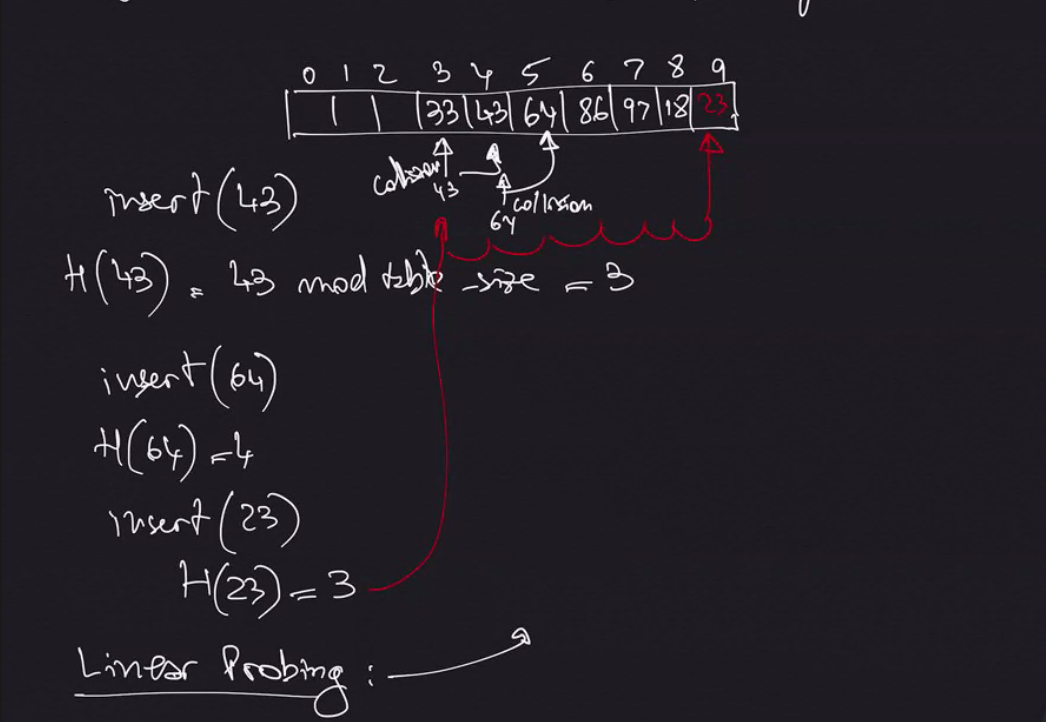 0 1 2 3 4 5 6 7 8 9
33 43 64 86 97 18 23
collision
43
collision
64
insert(43)
H(43) = 43 mod table-size = 3
insert(64)
H(64)=4
insert(23)
H(23) = 3
Linear Probing :